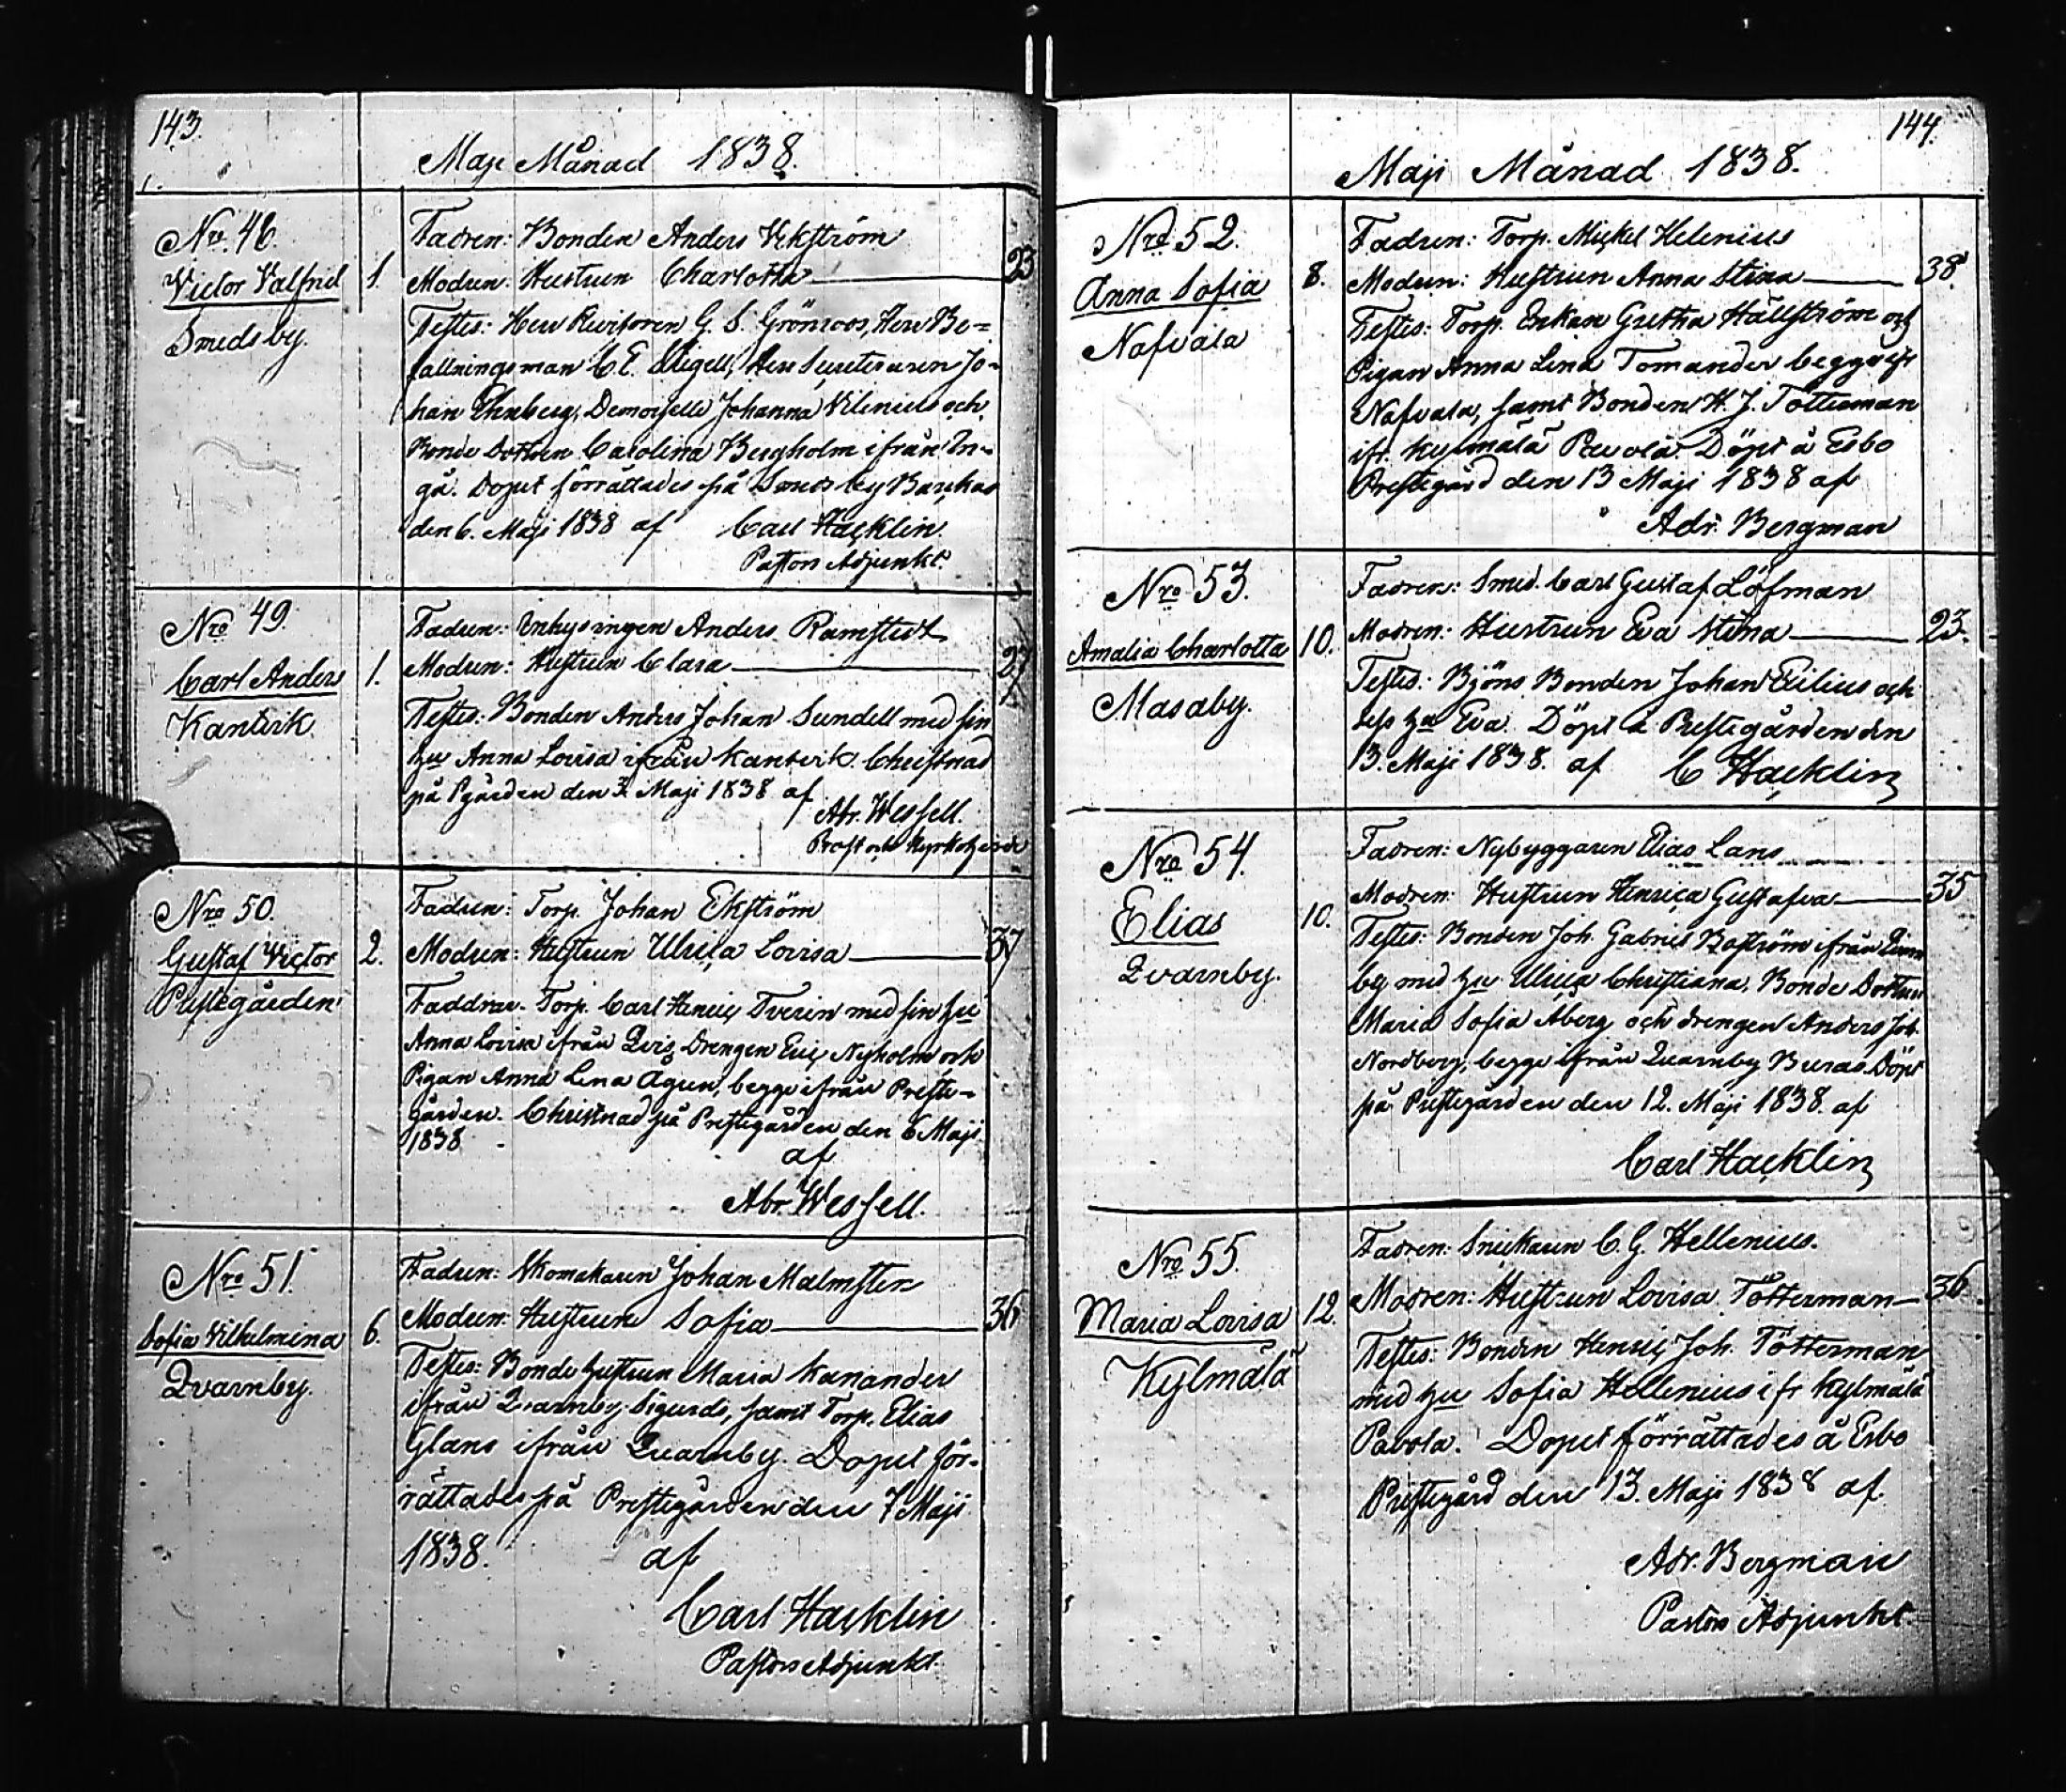 143.
Maji Månad 1838.
Nro 48.
Victor Valfrid
Smedsby.
1.
Fadren: Bonden Anders Ekström
Modren: Hustrun Charlotta
23
Testes: Herr Revisoren G. S. Grönroos, Herr Be=
fallningsman C. E. Stigell, Herr Secreteraren Jo-
han Ehnberg, Demoiselle Johanna Vilenius och
Bonde Dottren Carolina Bergholm ifrån In-
gå. Dopet förrättades på Smedsby Barkas
den 6. Maji 1838 af Carl Hacklin
Pastors Adjunkt.
Nro 49.
Carl Anders
Kantvik.
1.
Fadren: Inhysingen Anders Ramstedt
Modren: Hustrun Clara
27
Testes: Bonden Anders Johan Sundell med sin
hu Anna Lovisa ifrån Kantvik. Christnad
på Pgården den 3 Maji 1838 af
Abr. Wessell.
Prost och Kyrkoherde
Nro 50.
Gustaf Victor
Prestegården
2.
Fadren: Torp. Johan Ekström
Modren: Hustrun Ulrica Lovisa
37
Faddrar. Torp. Carl Henric Tverin med sin hu
Anna Lovisa ifrån Qvis, Drengen Eric Nyholm och
Pigan Anna Lena Agren, begge ifrån Preste-
gården. Christnad på Prestegården den 6 Maji
1838
af
Abr. Wessell.
Nro 51.
Sofia Vilhelmina
Qvarnby.
6.
Fadren: Skomakaren Johan Malmsten
Modren: Hustrun Sofia
36
Testes: Bonde hustrun Maria Kanander
ifrån Qvarnby Sigurds, samt Torp. Elias
Glans ifrån Quarnby. Dopet för-
rättades på Prestegården den 7 Maji
1838. af
Carl Hacklin
Pastors Adjunkt.
144.
Maji Månad 1838.
Nro 52.
Anna Sofia
Nafvala
8.
Fadren: Torp. Mickel Helenius
Modren: Hustrun Anna Stina
38.
Testes: Torp. Enkan Gretha Hällström och
Pigan Anna Lena Tomander begge ifr
Nafvala, samt Bonden H. J. Tötterman
ifr. Kylmälä Pavola. Döpt å Esbo
Prestegård den 13 Maji 1838 af
Adr. Bergman
Nro 53.
Amalia Charlotta
Masaby.
10.
Fadren: Smed. Carl Gustaf Löfman
Modren: Hustrun Eva Stina
23.
Testes: Björs Bonden Johan Eilius och
dess hu Eva. Döpt å Prestegården den
13. Maji 1838. af C Hacklin
Nro 54.
Elias
Qvarnby.
10.
Fadren: Nybyggaren Elias Lans
Modren: Hustrun Henrica Gustafva
35
Testes: Bonden Joh. Gabriel Boström ifrån
by med hu Ulrica Christiana, Bonde Dottren
Maria Sofia Åberg och drengen Anders Joh.
Nordberg, begge ifrån Quarnby Buras. Döpt
på Prestegården den 12. Maji 1838. af
Carl Hacklin
Nro 55.
Maria Lovisa
Kylmälä
12.
Fadren: Snickaren C. G. Hellenius.
Modren: Hustrun Lovisa Tötterman
36
Testes: Bonden Henric Joh. Tötterman
med hu Sofia Hellenius ifr Kylmälä
Pavola. Dopet förrättades å Esbo
Prestegård den 13. Maji 1838 af.
Adr. Bergman
Pastors Adjunkt.